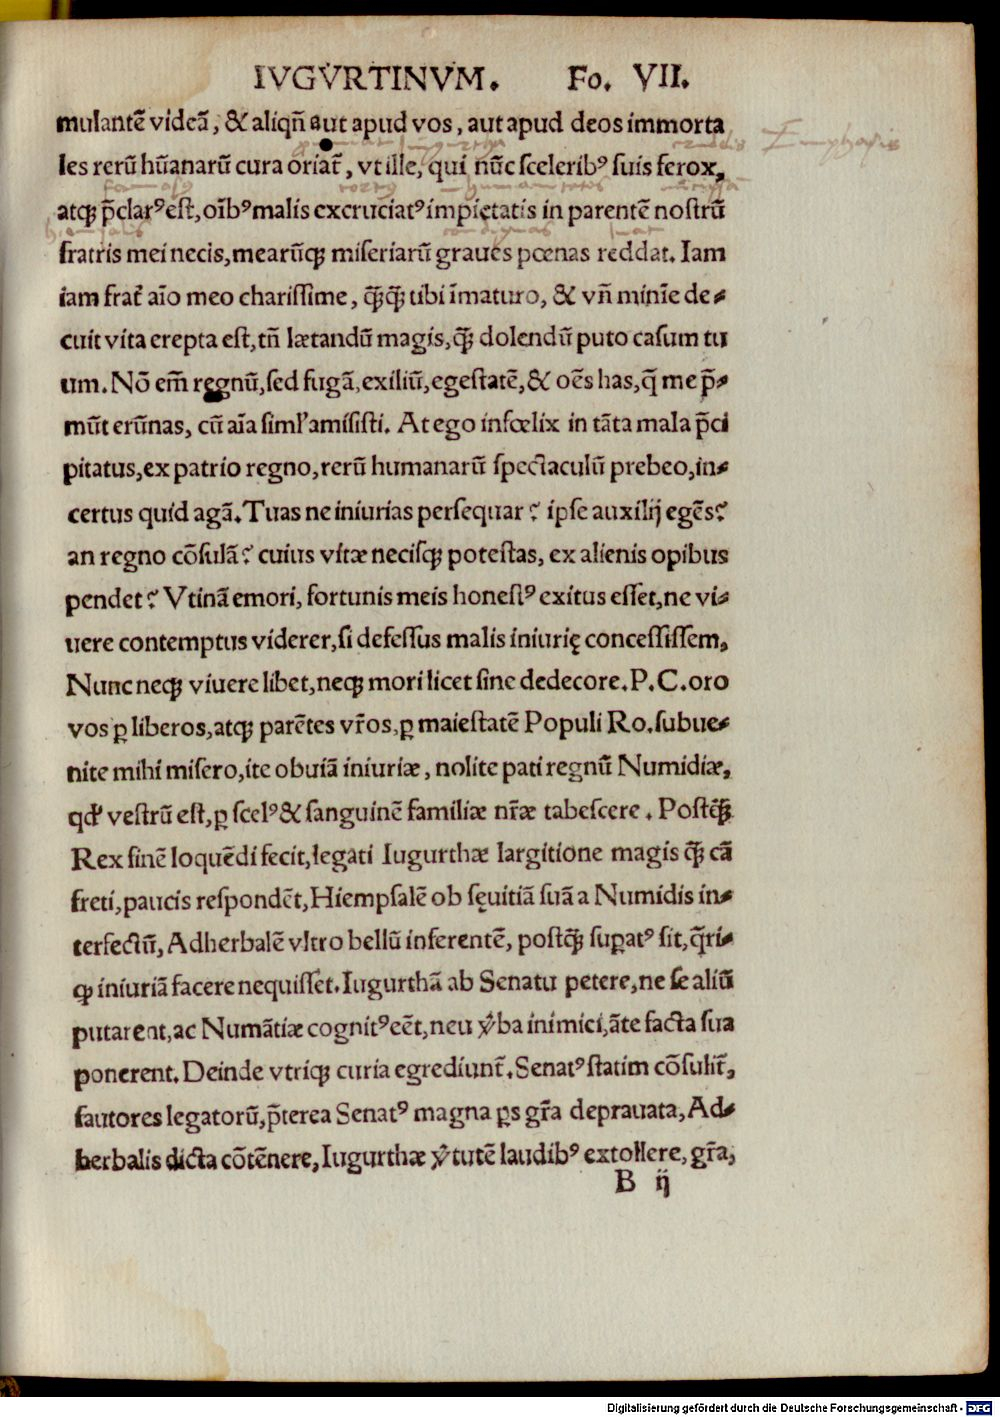 IVGVRTINVM. Fo. VII.
mulantẽ videã, & aliqñ aut apud vos, aut apud deos immorta
les rerũ hũanarũ cura oriat̃, vt ille, qui nũc sceleribꝰ suis ferox,
atqꝫ p̃clarꝰ est, oĩbꝰ malis excruciatꝰ impietatis in parentẽ nostrũ
fratris mei necis, mearũqꝫ miseriarũ graues pœnas reddat. Iam
iam frat̃ aĩo meo charissime, q̃ꝫq̃ꝫ tibi ĩmaturo, & vñ minĩe de⸗
cuit vita erepta est, tñ lætandũ magis, q̃ꝫ dolendũ puto casum tu
um. Nõ em̃ regnũ, sed fugã, exiliũ, egestatẽ, & oẽs has, q̃ me p̃⸗
mũt erũnas, cũ aĩa siml' amisisti. At ego infœlix in tãta mala p̃ci
pitatus, ex patrio regno, rerũ humanarũ spectaculũ prebeo, in⸗
certus quid agã. Tuas ne iniurias persequar? ipse auxilij egẽs?
an regno cõsulã? cuius vitæ necisqꝫ potestas, ex alienis opibus
pendet? Vtinã emori, fortunis meis honestꝰ exitus esset, ne vi⸗
uere contemptus viderer, si defessus malis iniurię concessissem,
Nunc neqꝫ viuere libet, neqꝫ mori licet sine dedecore. P. C. oro
vos ꝑ liberos, atqꝫ parẽtes vr̃os, ꝑ maiestatẽ Populi Ro. subue⸗
nite mihi misero, ite obuiã iniuriæ, nolite pati regnũ Numidiæ,
qd' vestrũ est, ꝑ scelꝰ & sanguinẽ familiæ nr̃æ tabescere. Postq̃ꝫ
Rex finẽ loquẽdi fecit, legati Iugurthæ largitione magis q̃ꝫ cã
freti, paucis respondẽt, Hiempsalẽ ob sęuitiã suã a Numidis in⸗
terfectũ, Adherbalẽ vltro bellũ inferentẽ, postq̃ꝫ suꝑatꝰ sit, q̃ri⸗
ꝙ iniuriã facere nequisset. Iugurthã ab Senatu petere, ne se aliũ
putarent, ac Numãtiæ cognitꝰ eẽt, neu v̾ba inimici, ãte facta sua
ponerent. Deinde vtriqꝫ curia egrediunt̃. Senatꝰ statim cõsulit̃,
fautores legatorũ, p̃terea Senatꝰ magna ꝑs gr̃a deprauata, Ad⸗
herbalis dicta cõtẽnere, Iugurthæ v̾tutẽ laudibꝰ extollere, gr̃a,
B ij
Emphasis
Digitalisierung gefördert durch die Deutsche Forschungsgemeinschaft - DFG